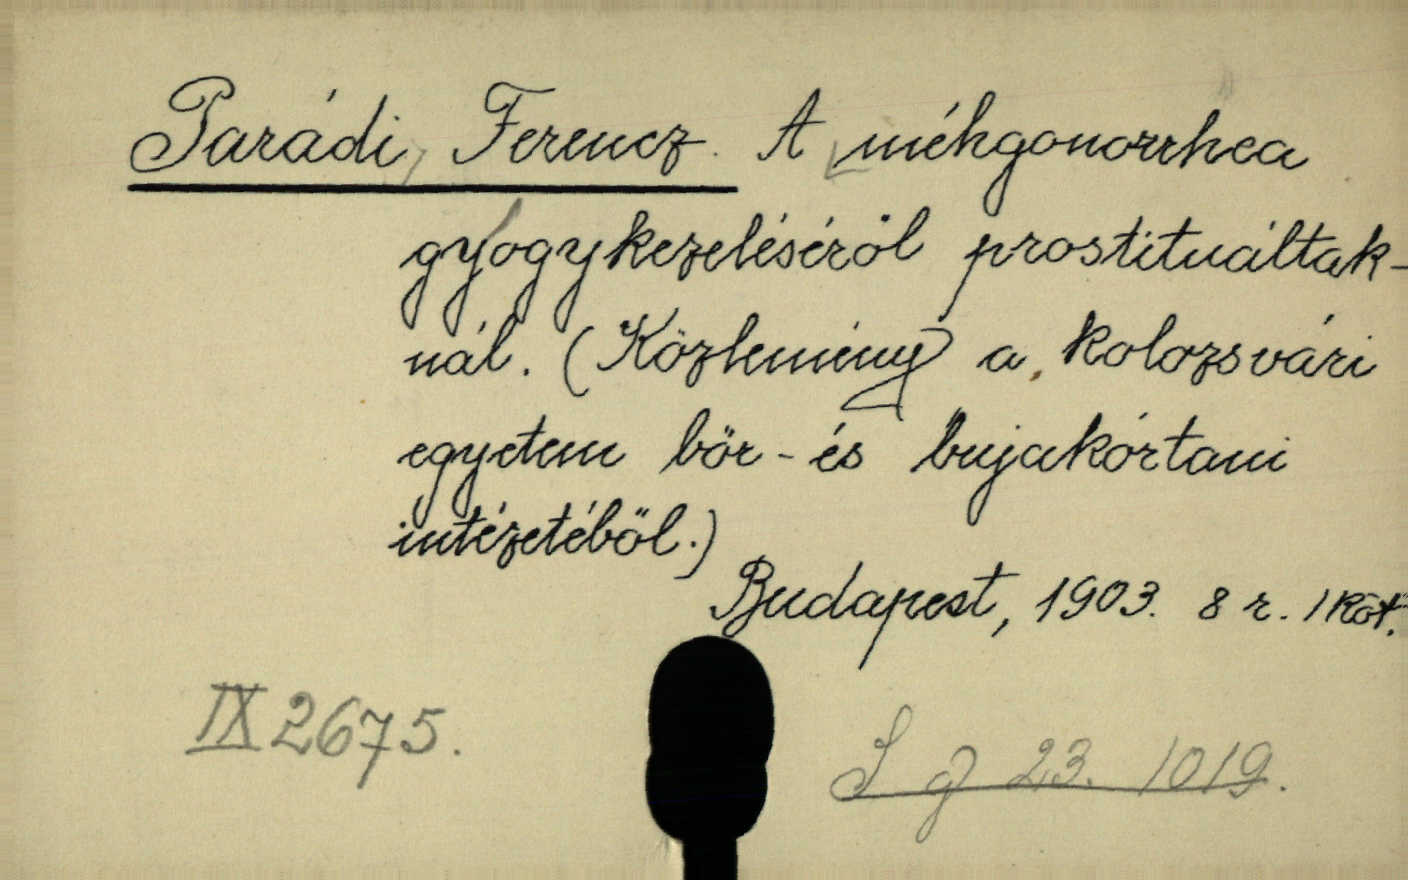 Parádi, Ferencz. A méhgonorrhea
gyógykezeléséröl prostituáltak-
nál. (Közlemény a kolozsvári
egyetem bör- és bujakórtani
intézetéböl.)
Budapest, 1903. 8 r. 1 köt.
IX 2675.
S g 23. 1019.